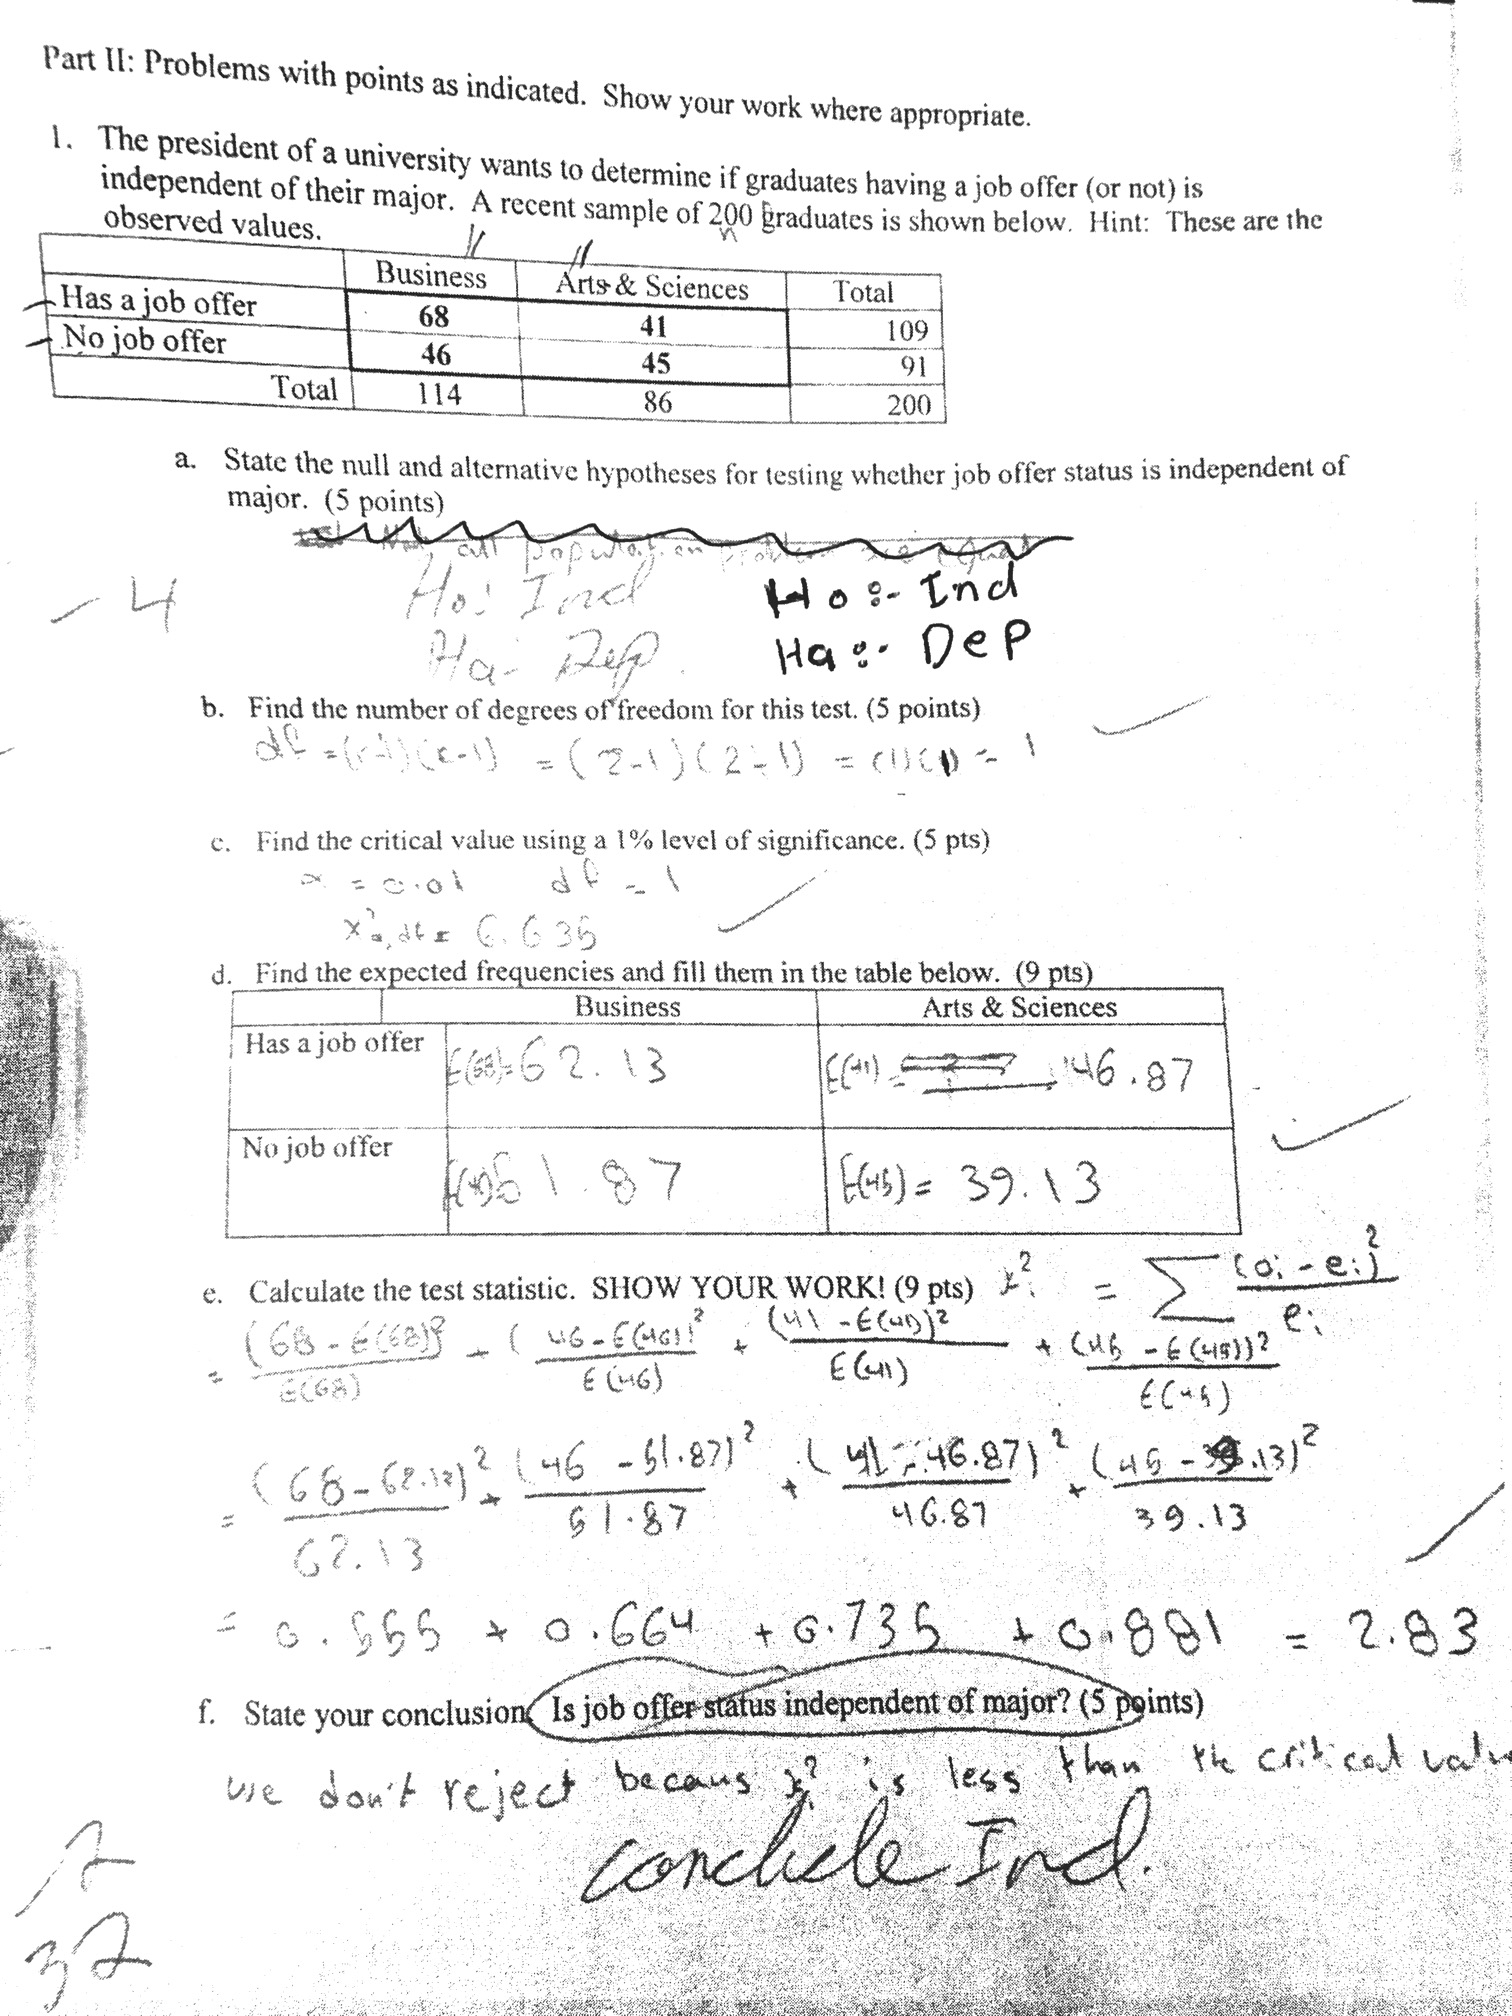 Part II: Problems with points as indicated. Show your work where appropriate.
1. The president of a university wants to determine if graduates having a job offer (or not) is
independent of their major. A recent sample of 200 graduates is shown below. Hint: These are the
observed values.
n
Business Arts & Sciences Total
Has a job offer 68 41 109
No job offer 46 45 91
Total 114 86 200
a. State the null and alternative hypotheses for testing whether job offer status is independent of
major. (5 points)
all population
Ho: Ind Ho :- Ind
-4
Ha- Dep. Ha :- Dep
b. Find the number of degrees of freedom for this test. (5 points)
df = (r-1)(c-1) = (2-1)(2-1) = (1)(1) = 1
c. Find the critical value using a 1% level of significance. (5 pts)
α = 0.01 df = 1
x²α,df = 6.635
d. Find the expected frequencies and fill them in the table below. (9 pts)
Business Arts & Sciences
Has a job offer E(68)=62.13 E(41) = 46.87
No job offer E(46) 51.87 E(45) = 39.13
e. Calculate the test statistic. SHOW YOUR WORK! (9 pts) x² = Σ (oi - ei)² / ei
= (68 - E(68))² / E(68) + (46 - E(46))² / E(46) + (41 - E(41))² / E(41) + (45 - E(45))² / E(45)
= (68 - 62.13)² / 62.13 + (46 - 51.87)² / 51.87 + (41 - 46.87)² / 46.87 + (45 - 39.13)² / 39.13
= 0.555 + 0.664 + 0.735 + 0.881 = 2.83
f. State your conclusion. Is job offer status independent of major? (5 points)
we don't reject becaus x² is less than the critical valu
conclude Ind.
32